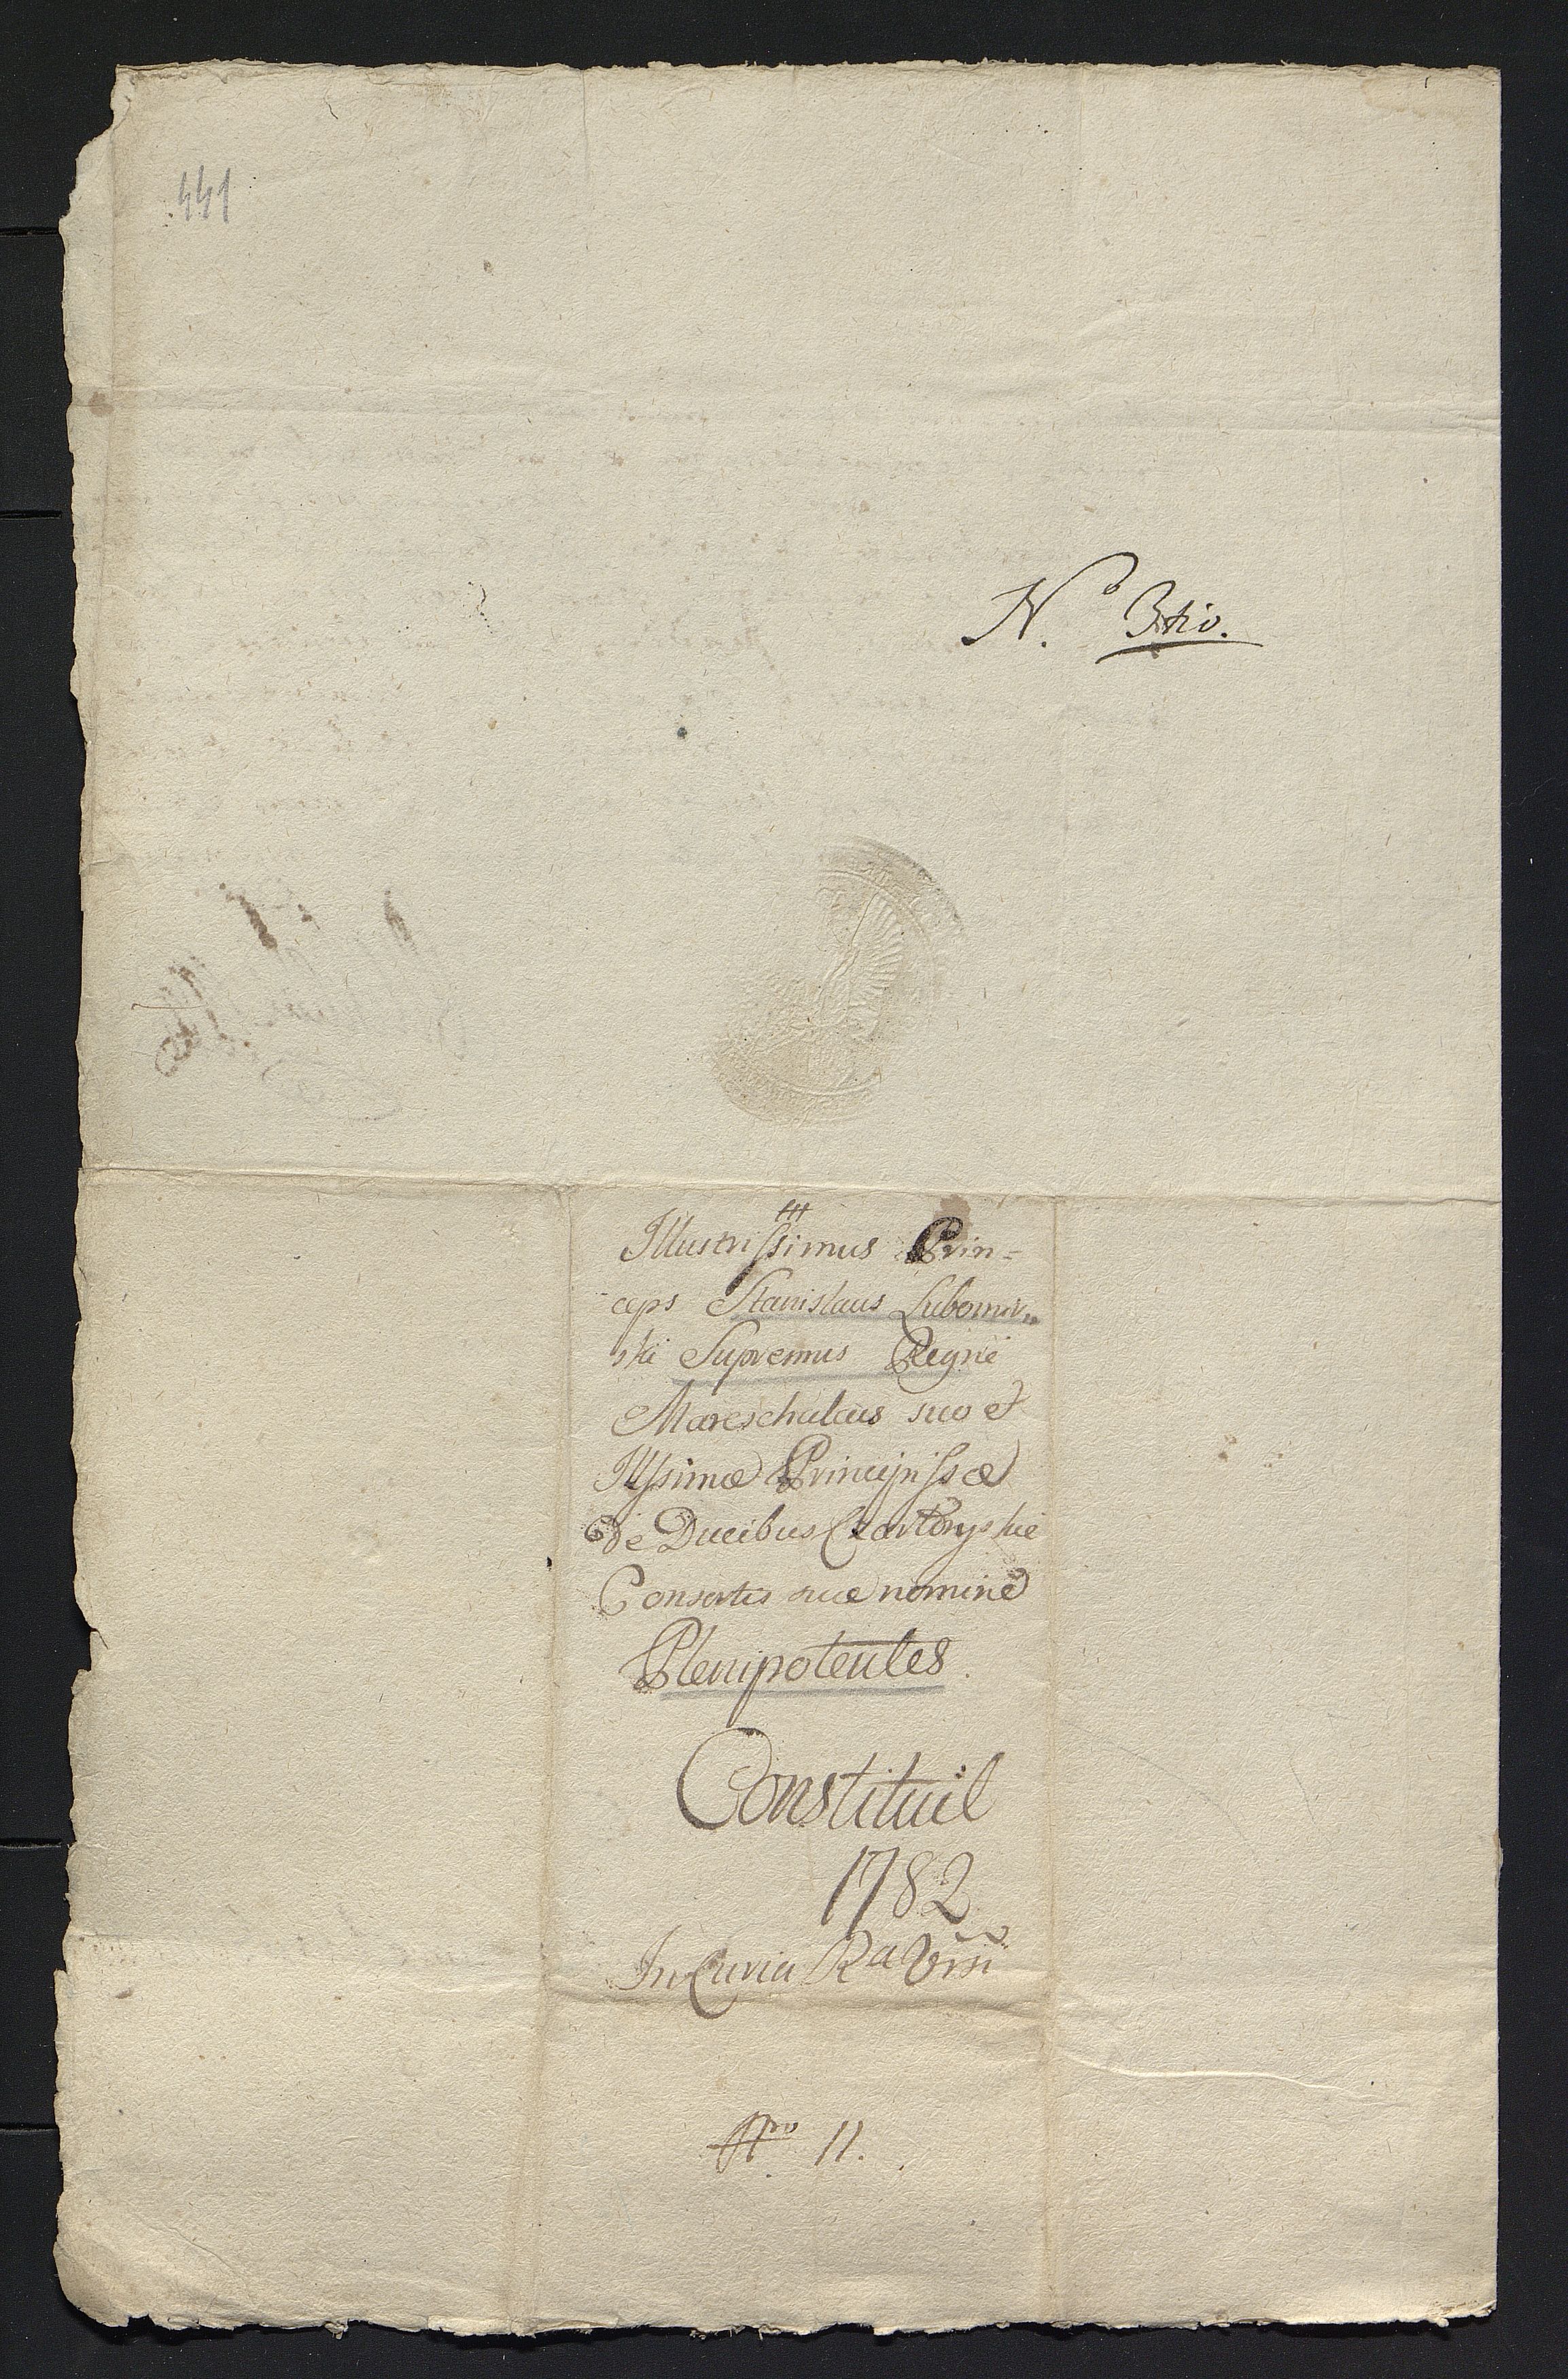 441
N.o 3tio.
Illustrissimus Prin=
ceps Stanislaus Lubomir„
ski Supremus Regni
Mareschalcus suo et
Illssimæ Principissæ
de Ducibus Czartoryskie
Consortis suæ nomine
Plenipotentes.
Constituit
1782
In Curia Ra Vrsi
Nro 11.